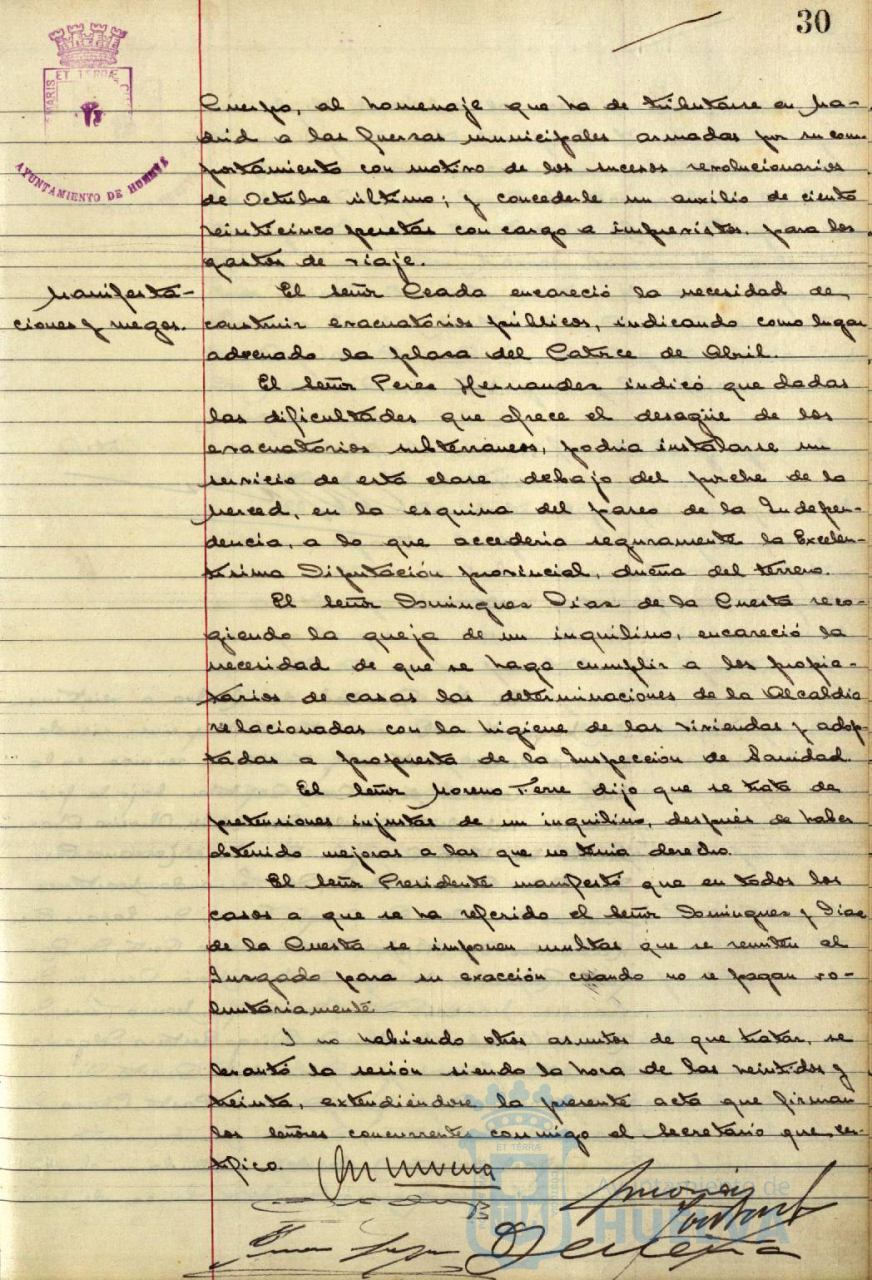 30
PORTUS MARIS ET TERRÆ CUSTODIA
AYUNTAMIENTO DE HUELVA
Cuerpo, al homenaje que ha de tributarse en Ma-
drid a las fuerzas municipales armadas por su com-
portamiento con motivo de los sucesos revolucionarios
de Octubre último; y concederle un auxilio de ciento
veinticinco pesetas con cargo a imprevistos, para los
gastos de viaje.
Manifesta-
ciones y ruegos.
El señor Ceada encareció la necesidad de
construir evacuatorios públicos, indicando como lugar
adecuado la plaza del Catorce de Abril.
El señor Perez Hernandez indicó que dadas
las dificultades que ofrece el desagüe de los
evacuatorios subterraneos, podria instalarse un
servicio de esta clase debajo del porche de la
Merced, en la esquina del paseo de la Indepen-
dencia, a lo que accederia seguramente la Excelen-
tisima Diputación provincial, dueña del terreno.
El señor Dominguez Diaz de la Cuesta reco-
giendo la queja de un inquilino, encareció la
necesidad de que se haga cumplir a los propie-
tarios de casas las determinaciones de la Alcaldia
relacionadas con la higiene de las viviendas y adop-
tadas a propuesta de la Inspección de Sanidad.
El señor Moreno Ferre dijo que se trata de
pretensiones injustas de un inquilino, después de haber
obtenido mejoras a las que no tenia derecho.
El señor Presidente manifestó que en todos los
casos a que se ha referido el señor Dominguez y Diaz
de la Cuesta se imponen multas que se remiten al
Juzgado para su exacción cuando no se pagan vo-
luntariamente.
Y no habiendo otros asuntos de que tratar, se
levantó la sesión siendo la hora de las veintidos y
treinta, extendiéndose la presente acta que firman
los señores concurrentes conmigo el Secretario que, cer-
tifico.
ET TERRÆ
Ayuntamiento de
HUELVA